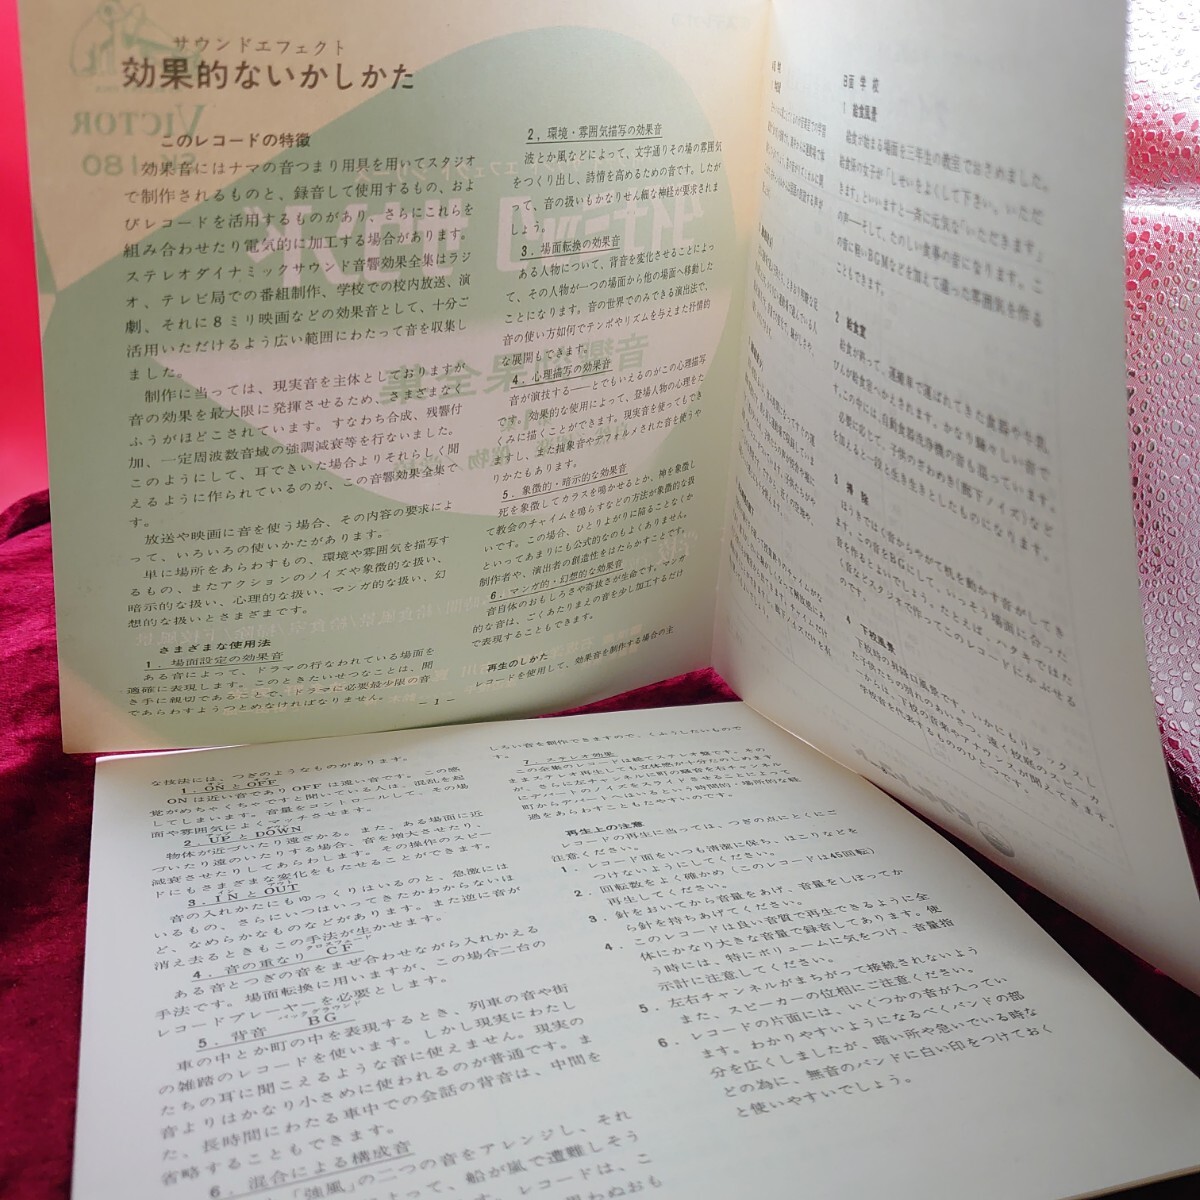 サウンドエフェクト
効果的ないかしかた
このレコードの特徴
効果音にはナマの音つまり用具を用いてスタジオ
で制作されるものと、録音して使用するもの、およ
びレコードを活用するものがあり、さらにこれらを
組み合わせたり電気的に加工する場合があります。
ステレオダイナミックサウンド音響効果全集はラジ
オ、テレビ局での番組制作、学校での校内放送、演
劇、それに8ミリ映画などの効果音として、十分ご
活用いただけるよう広い範囲にわたって音を収集し
ました。
制作に当っては、現実音を主体としておりますが
音の効果を最大限に発揮させるため、さまざまなく
ふうがほどこされています。すなわち合成、残響付
加、一定周波数音域の強調減衰等を行ないました。
このようにして、耳できいた場合よりそれらしく聞
えるように作られているのが、この音響効果全集で
す。
放送や映画に音を使う場合、その内容の要求によ
って、いろいろの使いかたがあります。
単に場所をあらわすもの、環境や雰囲気を描写す
るもの、またアクションのノイズや象徴的な扱い、
暗示的な扱い、心理的な扱い、マンガ的な扱い、幻
想的な扱いとさまざまです。
さまざまな使用法
1．場面設定の効果音
ある音によって、ドラマの行なわれている場面を
適確に表現します。このときたいせつなことは、聞
き手に親切であることで、ドラマに必要最少限の音
であらわすようつとめなければなりません。
2．環境・雰囲気描写の効果音
波とか風などによって、文字通りその場の雰囲気
をつくり出し、詩情を高めるための音です。したが
って、音の扱いもかなりせん細な神経が要求されま
しょう。
3．場面転換の効果音
ある人物について、背音を変化させることによっ
て、その人物が一つの場面から他の場面へ移動した
ことになります。音の世界でのみできる演出法で、
音の使い方如何でテンポやリズムを与えまた抒情的
な展開もできます。
4．心理描写の効果音
音が演技する――とでもいえるのがこの心理描写
です。効果的な使用によって、登場人物の心理をた
くみに描くことができます。現実音を使ってもでき
ますし、また抽象音やデフォルメされた音を使うや
りかたもあります。
5．象徴的・暗示的な効果音
死を象徴してカラスを鳴かせるとか、神を象徴し
て教会のチャイムを鳴らすなどの方法が象徴的な扱
いです。この場合、ひとりよがりに陥ることなくか
といってあまりにも公式的なのもよくありません。
制作者や、演出者の創造性をはたらかすことです。
6．マンガ的・幻想的な効果音
音自体のおもしろさや奇抜さが生命です。マンガ
的な音は、ごくあたりまえの音を少し加工するだけ
で表現することもできます。
再生のしかた
レコードを使用して、効果音を制作する場合の主
－1－
B面 学校
1 給食風景
給食が始まる場面を三年生の教室でおさめました。
給食係の女子が「しせいをよくして下さい。いただ
きます」といいますと一斉に元気な“いただきます”
の声――そして、たのしい食事の音になります。こ
の音に軽いBGMなどを加えて違った雰囲気を作る
こともできます。
2 給食室
給食が終って、運搬車で運ばれてきた食器や牛乳
びんが給食室へかえされます。かなり騒々しい音で
す。この中には、自動食器洗浄機の音も混っています。
必要に応じて、子供のざわめき(廊下ノイズ)など
を加えると一段と生き生きとしたものになります。
3 掃除
はうきではく音からやがて机を動かす音がしてき
ます。この音をBGにして、いっそう場面に合った
音を作るとよいでしょう。たとえば、ハタキではた
く音などスタジオで作ってこのレコードにかぶせる
のです。
4 下校風景
下校時の昇降口風景です。いかにもリラックスし
た子供たちの別れのあいさつ、遠く校庭のスピーカ
ーからは、下校の音楽やアナウンスが聞えてきます。
学校音を代表するもののひとつです。
な技法には、つぎのようなものがあります。
1．ONとOFF
ONは近い音でありOFFは遠い音です。この感
覚がめちゃくちゃですと聞いている人は、混乱を起
してしまいます。音量をコントロールして、その場
面や雰囲気によくマッチさせます。
2．UPとDOWN
物体が近づいたり遠ざかる。また、ある場面に近
づいたり遠のいたりする場合、音を増大させたり、
減衰させたりしてあらわします。その操作のスピー
ドにもさまざまな変化をもたせることができます。
3．INとOUT
音の入れかたにもゆっくりはいるのと、急激には
いるもの、さらにいつはいってきたかわからないほ
ど、なめらかなものなどがあります。また逆に音が
消え去るときもこの手法が生かせます。
クロスフェード
4．音の重なり CF
ある音とつぎの音をまぜ合わせながら入れかえる
手法です。場面転換に用いますが、この場合二台の
レコードプレーヤーを必要とします。
バックグラウンド
5．背音 BG
車の中とか町の中を表現するとき、列車の音や街
の雑踏のレコードを使います。しかし現実にわたし
たちの耳に聞こえるような音に使えません。現実の
音よりはかなり小さめに使われるのが普通です。ま
た、長時間にわたる車中での会話の背音は、中間を
省略することもできます。
6．混合による構成音
「強風」の二つの音をアレンジし、それ
よって、船が嵐で遭難しそう
す。レコードは、こ
思わぬおも
しろい音を制作できますので、くふうしたいもので
す。
7．ステレオ効果
この全集のレコードは総てステレオ盤です。その
ままステレオ再生しても、立体感が十分たのしめま
すが、さらに左チャンネルに町の騒音を右チャンネル
にデパートのノイズをクロスさせることによって
町からデパートへはいるという時間的・場所的な経
過をあらわすこともたやすいのです。
再生上の注意
レコードの再生に当っては、つぎの点にとくにご
注意ください。
1．レコード面をいつも清潔に保ち、ほこりなどを
つけないようにしてください。
2．回転数をよく確かめ（このレコードは45回転）
再生してください。
3．針をおいてから音量をあげ、音量をしぼってか
ら針を持ちあげてください。
4．このレコードは良い音質で再生できるように全
体にかなり大きな音量で録音してあります。使
う時には、特にボリュームに気をつけ、音量指
示計に注意してください。
5．左右チャンネルがまちがって接続されないよう
また、スピーカーの位相にご注意ください。
6．レコードの片面には、いくつかの音が入ってい
ます。わかりやすいようになるべくバンドの部
分を広くしましたが、暗い所や急いでいる時な
どの為に、無音のバンドに白い印をつけておく
と使いやすいでしょう。